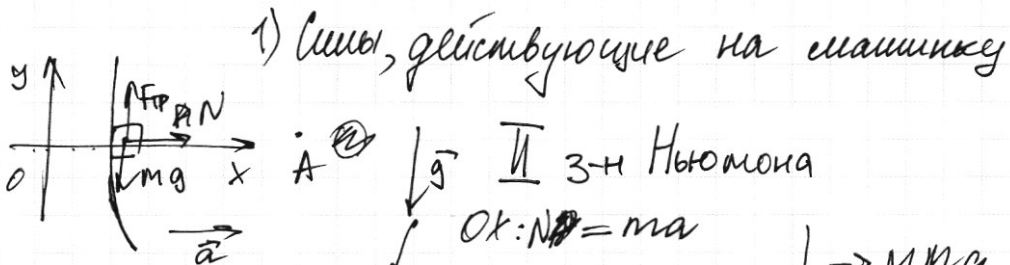 1) Силы, действующие на машинку
y Fтр N
0 mg x A g II з-н Ньютона
a OX: N = ma